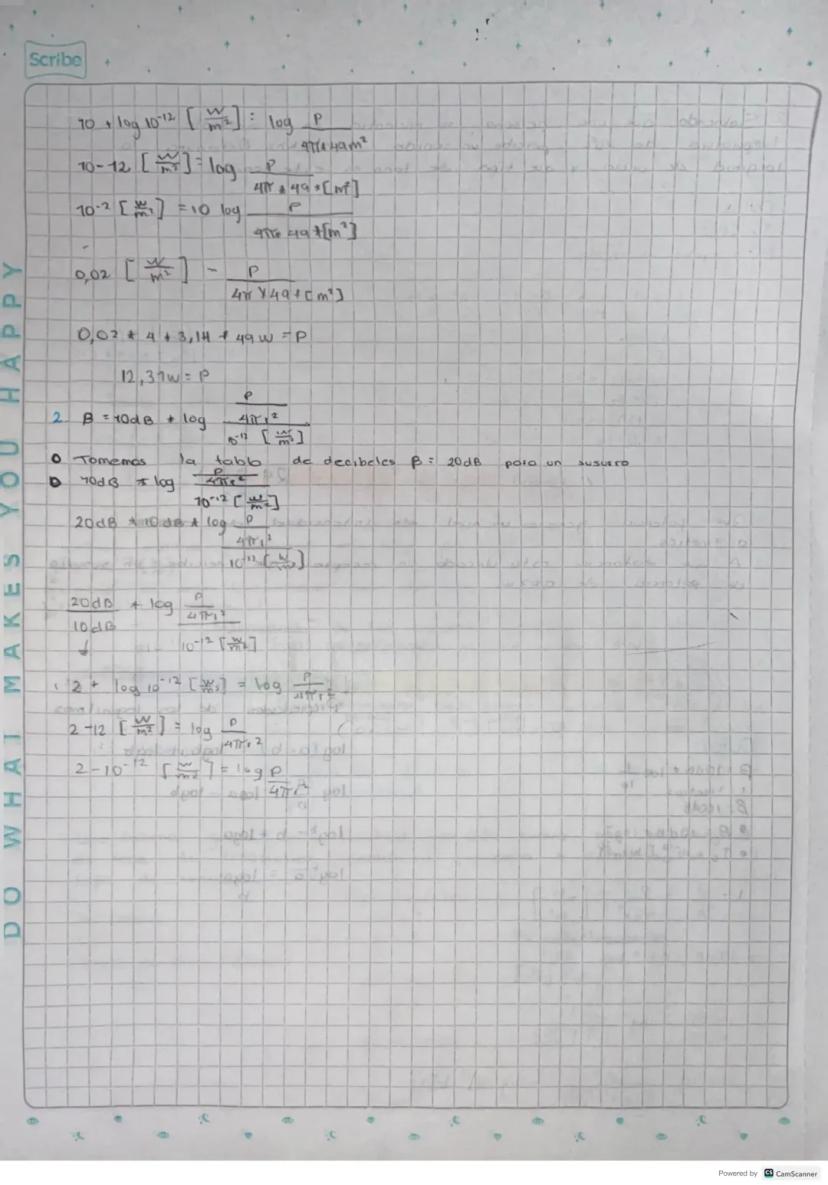 Scribe
10 + log 10^-12 [W/m^2] = log P/(4π*49m^2)
10-12 [W/m^2] = log P/(4π*49*[m^2])
10^-2 [W/m^2] = 10 log P/(4π*49*[m^2])
0,02 [W/m^2] - P/(4π*49*[m^2])
0,02 * 4 * 3,14 * 49 w = P
12,31w = P
2 β = 10dB * log (P/4πr^2)/(10^-12 [W/m^2])
Tomemos la tabla de decibeles β = 20dB para un susurro
10dB * log (P/4πr^2)/(10^-12 [W/m^2])
20dB * 10dB * log (P/4πr^2)/(10^-12 [W/m^2])
20dB/10dB * log (P/4πr^2)/(10^-12 [W/m^2])
2 + log 10^-12 [W/m^2] = log P/4πr^2
2-12 [W/m^2] = log P/4πr^2
2-10^-12 [W/m^2] = log P/4πr^2
DO WHAT MAKES YOU HAPPY
Powered by CS CamScanner